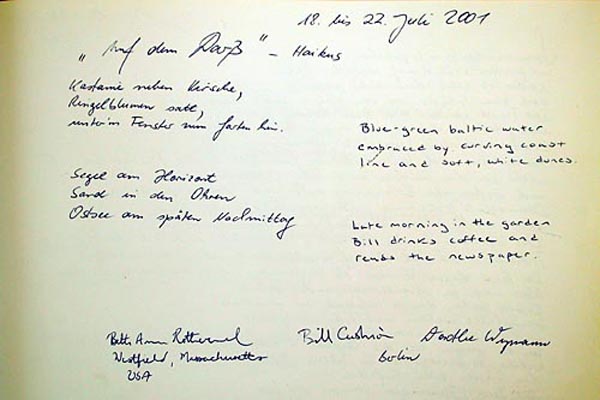 18. bis 22. Juli 2001
"Auf dem Darß" - Haikus
Kastanie neben Kirsche,
Ringelblumen satt,
unter'm Fenster zum Garten hin.
Segel am Horizont
Sand in den Ohren
Ostsee am späten Nachmittag
Blue-green baltic water
embraced by curving coast
line and soft, white dunes.
Late morning in the garden
Bill drinks coffee and
reads the newspaper.
Beth Ann
Westfield, Massachusetts
USA
Bill
Berlin